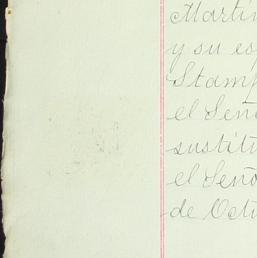 Martín
y su es
Stamp
el Seño
sustitu
el Seño
de Octu